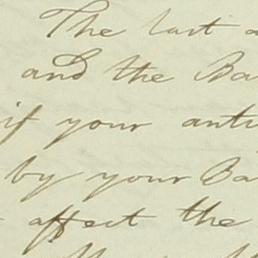 The last a
and the Ba
if your anti
by your Ba
affect the